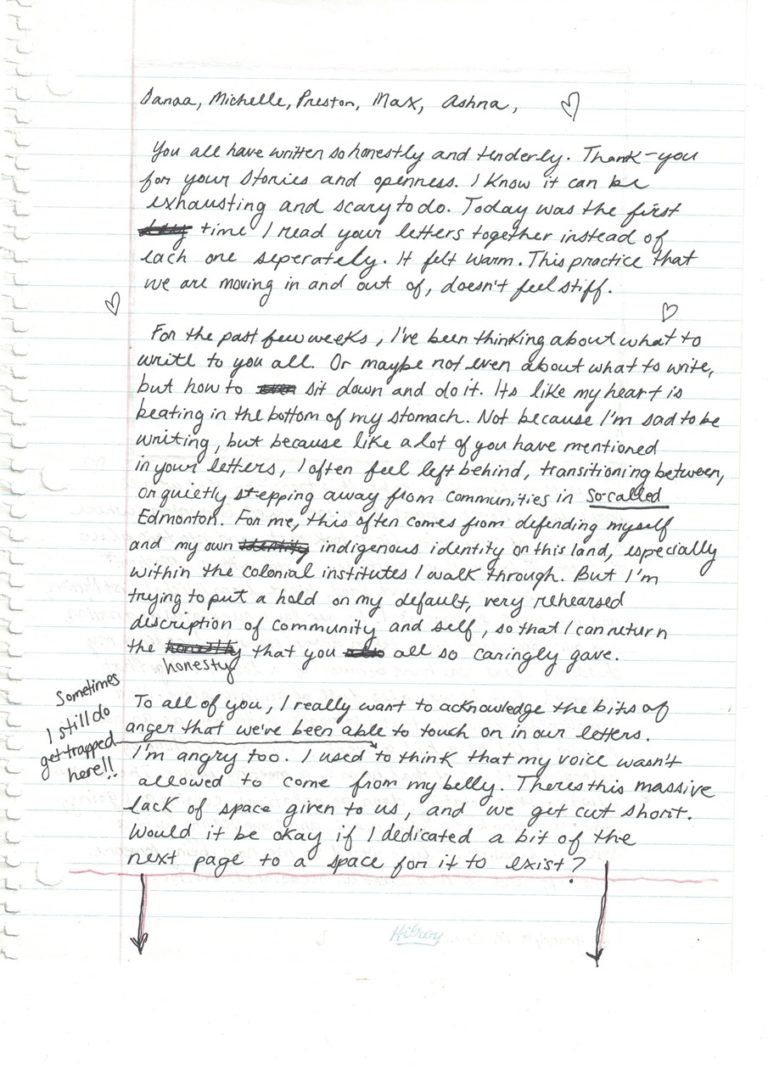 Danaa, Michelle, Preston, Max, Ashna,
You all have written so honestly and tenderly. Thank-you
for your stories and openness. I know it can be
exhausting and scary to do. Today was the first
time I read your letters together instead of
each one seperately. It felt warm. This practice that
we are moving in and out of, doesn't feel stiff.
For the past few weeks, I've been thinking about what to
write to you all. Or maybe not even about what to write,
but how to sit down and do it. Its like my heart is
beating in the bottom of my stomach. Not because I'm sad to be
writing, but because like a lot of you have mentioned
in your letters, I often feel left behind, transitioning between,
or quietly stepping away from communities in so-called
Edmonton. For me, this often comes from defending myself
and my own identity indigenous identity on this land, especially
within the colonial institutes I walk through. But I'm
trying to put a hold on my default, very rehearsed
description of community and self, so that I can return
the honesty that you also all so caringly gave.
honesty
To all of you, I really want to acknowledge the bits of
anger that we've been able to touch on in our letters.
Sometimes
I still do
get trapped
here!!
I'm angry too. I used to think that my voice wasn't
allowed to come from my belly. Theres this massive
lack of space given to us, and we get cut short.
Would it be okay if I dedicated a bit of the
next page to a space for it to exist?
Hilroy